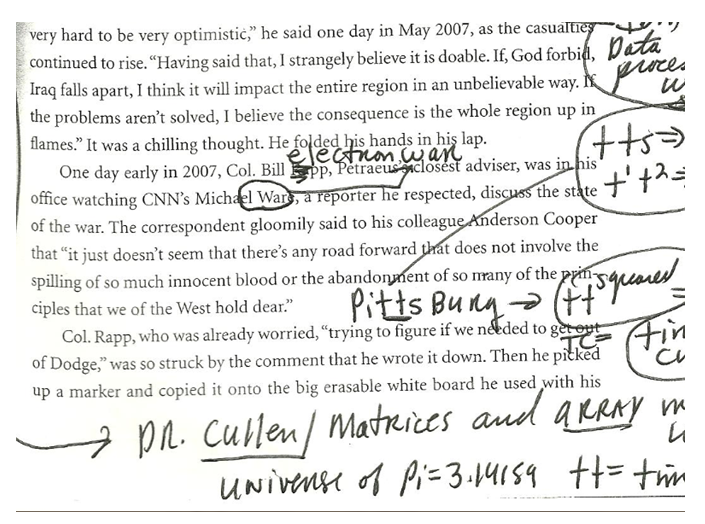 very hard to be very optimistic,” he said one day in May 2007, as the casualties
continued to rise. “Having said that, I strangely believe it is doable. If, God forbid,
Data
Iraq falls apart, I think it will impact the entire region in an unbelievable way. If
the problems aren’t solved, I believe the consequence is the whole region up in
flames.” It was a chilling thought. He folded his hands in his lap.
electron war
tts ⇒
One day early in 2007, Col. Bill Rapp, Petraeus’s closest adviser, was in his
office watching CNN’s Michael Ware, a reporter he respected, discuss the state
of the war. The correspondent gloomily said to his colleague Anderson Cooper
that “it just doesn’t seem that there’s any road forward that does not involve the
spilling of so much innocent blood or the abandonment of so many of the prin-
ciples that we of the West hold dear.”
Pitts Burg → tt squared =
Col. Rapp, who was already worried, “trying to figure if we needed to get out
TC=
of Dodge,” was so struck by the comment that he wrote it down. Then he picked
up a marker and copied it onto the big erasable white board he used with his
→ DR. Cullen/ Matrices and ARRAY
universe of Pi=3.14159 tt=